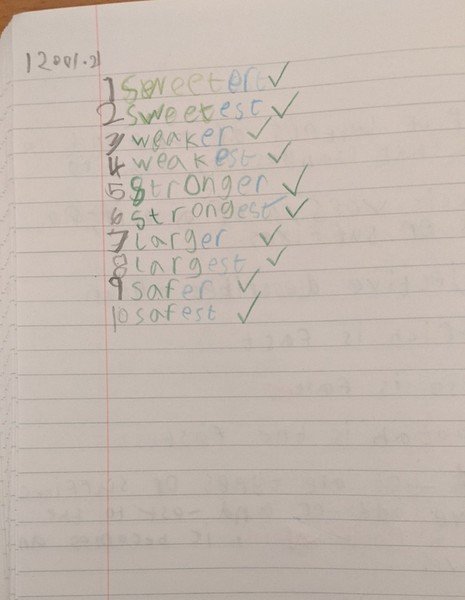 1 sweeter ✓
2 sweetest ✓
3 weaker ✓
4 weakest ✓
5 stronger ✓
6 strongest ✓
7 larger ✓
8 largest ✓
9 safer ✓
10 safest ✓